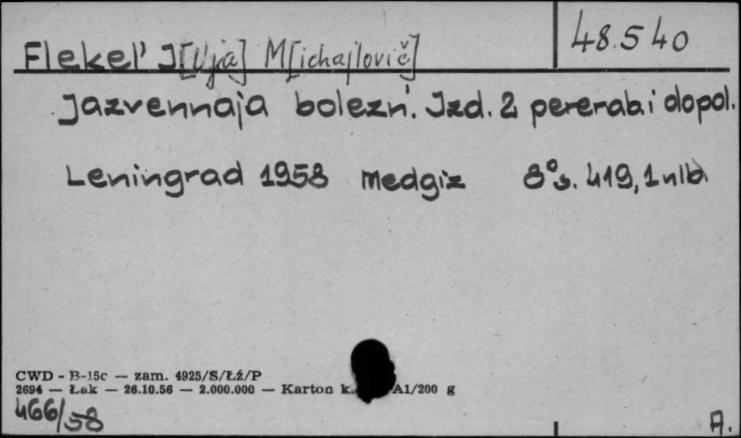 48.540
Flekel' J[lja] M[ichajlovič]
Jazvennaja bolezn'. Izd. 2 pererab i dopol.
Leningrad 1958 Medgiz 8° s. 419, 1 nlb
CWD - B-15c — zam. 4925/S/Łź/P
2694 — Łak — 26.10.56 — 2.000.000 — Karton k. A1/200 g
466/58
A.